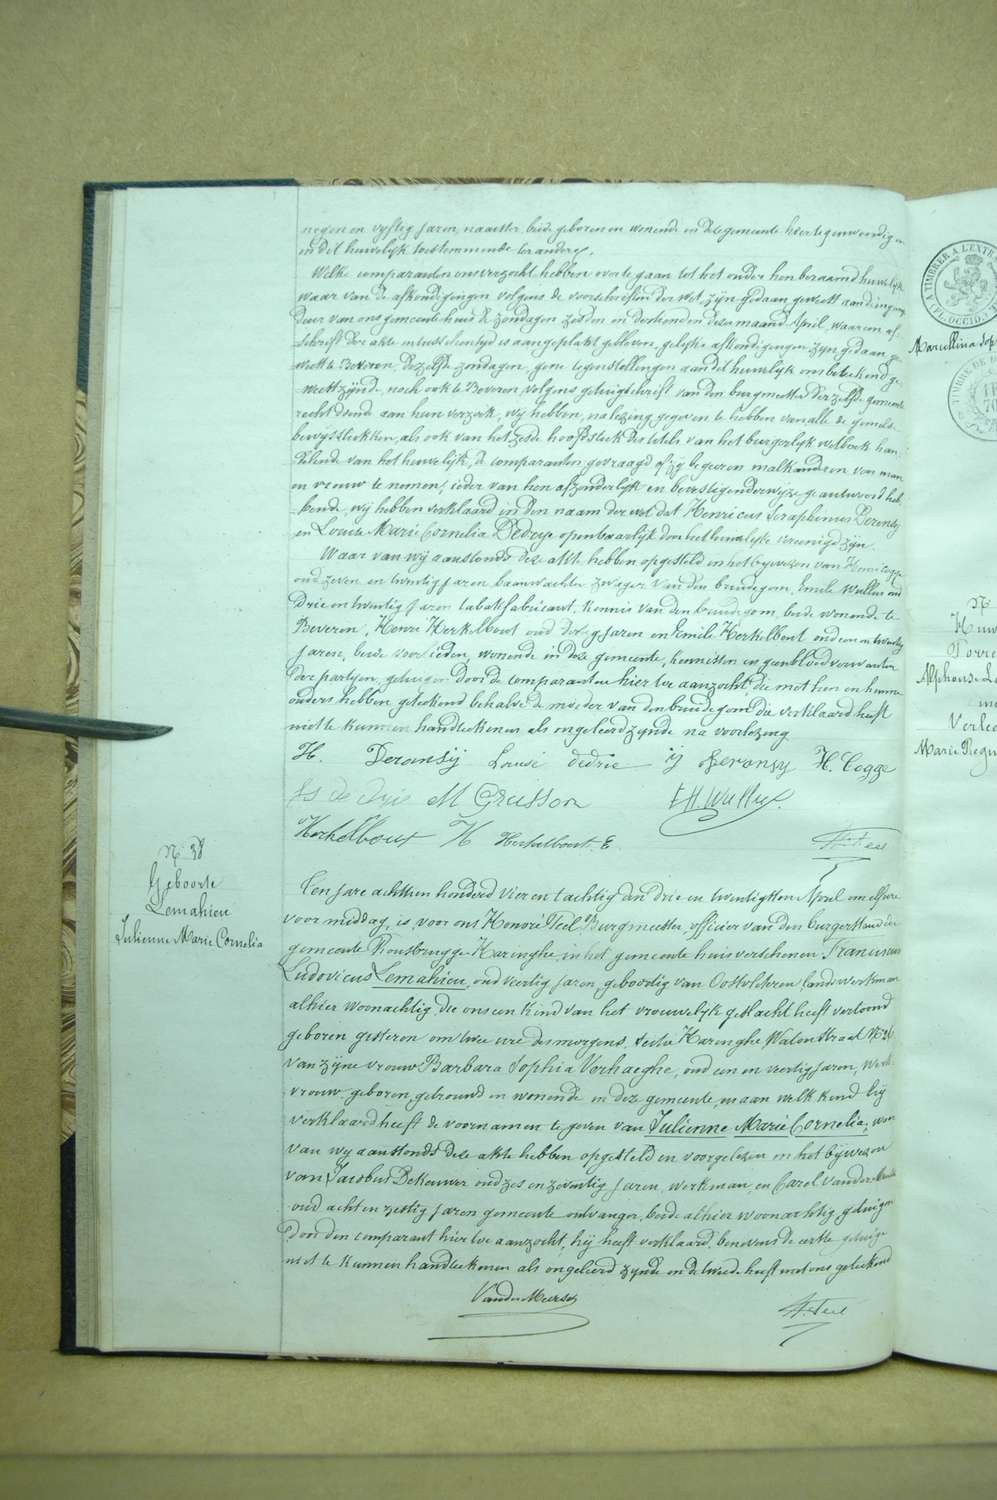 negen en vyftig jaren, naaister, beide geboren en wonende in deze gemeente hier tegenwoordig en
in dit huwelijk toestemmende ter andere,
Welke comparanten ons verzocht hebben over te gaan tot het onder hen beraamd huwelijk
waar van de afkondigingen volgens de voorschriften der wet zijn gedaan geweest aan den ingang
deur van ons gemeente huis de zondagen zesden en dertienden dezer maand April, waar een af-
schrift der akte intusschentyd is aangeplakt gebleven, gelyke afkondigingen zijn gedaan ge
weest te Beveren, dezelfde zondagen, geene tegenstellingen aan dit huwelijk ons betekend ge
weest zijnde, noch ook te Beveren, volgens getuigschrift van den burgmeester der zelfde gemeente
recht doende aan hun verzoek, wy hebben, na lezing gegeven te hebben van alle de gemelde
bewysstukken, als ook van het zesde hoofdstuk des titels van het burgerlyk wetboek han
delende van het huwelijk, de comparanten gevraagd of zy begeeren malkanderen voor man
en vrouw te nemen, ieder van hen afzonderlijk en bevestigenderwijze geantwoord heb
bende, wij hebben verklaard in den naam der wet dat Henricus Seraphinus Deronsy
en Louise Marie Cornelia Dedrye openbaarlijk door het huwelijk vereenigd zijn.
Waar van wij aanstonds deze akte hebben opgesteld en het bywezen van Henri Cogge
oud zeven en twintig jaren baanwachter zwager van den bruidegom, Emile Wullus oud
drie en twintig jaren tabakfabricant, kennis van den bruidegom, beide wonende te
Beveren, Henri Herkelbout oud dertig jaren en Emile Herkelbout oud een en twintig
jaren, beide voerlieden, wonende in deze gemeente, kennissen en geen bloedverwanten
der partijen, getuigen door de comparanten hier toe aanzocht, die met hen en hunne
ouders hebben geteekend behalve de moeder van den bruidegom die verklaard heeft
niet te kunnen handteekenen als ongeleerd zynde na voorlezing
H. Deronsij Louise dedrie Deronsy H. Cogge
M Grusson
Herkelbout H Herkelbout. E.
N. 38
Geboorte
Lemahieu
Julienne Marie Cornelia
Ten jare achttien honderd vier en tachtig den drie en twintigsten April om elf ure
voor middag, is voor ons Honoré Teel Burgmeester, officier van den burgerstand der
gemeente Rousbrugge-Haringhe, in het gemeente huis verschenen Franciscus
Ludovicus Lemahieu, oud veertig jaren, geboortig van Oostvleteren, landswerkman
alhier woonachtig, die ons een kind van het vrouwelyk geslacht heeft vertoond
geboren gisteren om twee ure des morgens, sectie Haringhe, Waten straat N° 26
van zijne vrouw Barbara Sophia Verhaeghe, oud een en veertig jaren, werk-
vrouw, geboren, getrouwd en wonende in deze gemeente, en aan welk kind hij
verklaard heeft de voornamen te geven van Julienne Marie Cornelia, waar
van wij aanstonds deze akte hebben opgesteld en voorgelezen in het bijwezen
van Jacobus Dekeuwer oud zes en zeventig jaren, werkman, en Carel Vander Meersch
oud acht en zestig jaren gemeente ontvanger, beide alhier woonachtig, getuigen
door den comparant hier toe aanzocht, hij heeft verklaard, benevens de eerste getuige
niet te kunnen handteekenen als ongeleerd zynde en de tweede heeft met ons geteekend
Vander Meersch
H Teel
A TIMBRER A L'EXTR
TIMBRE DE
N.
Huw
Alphonse
Verlec